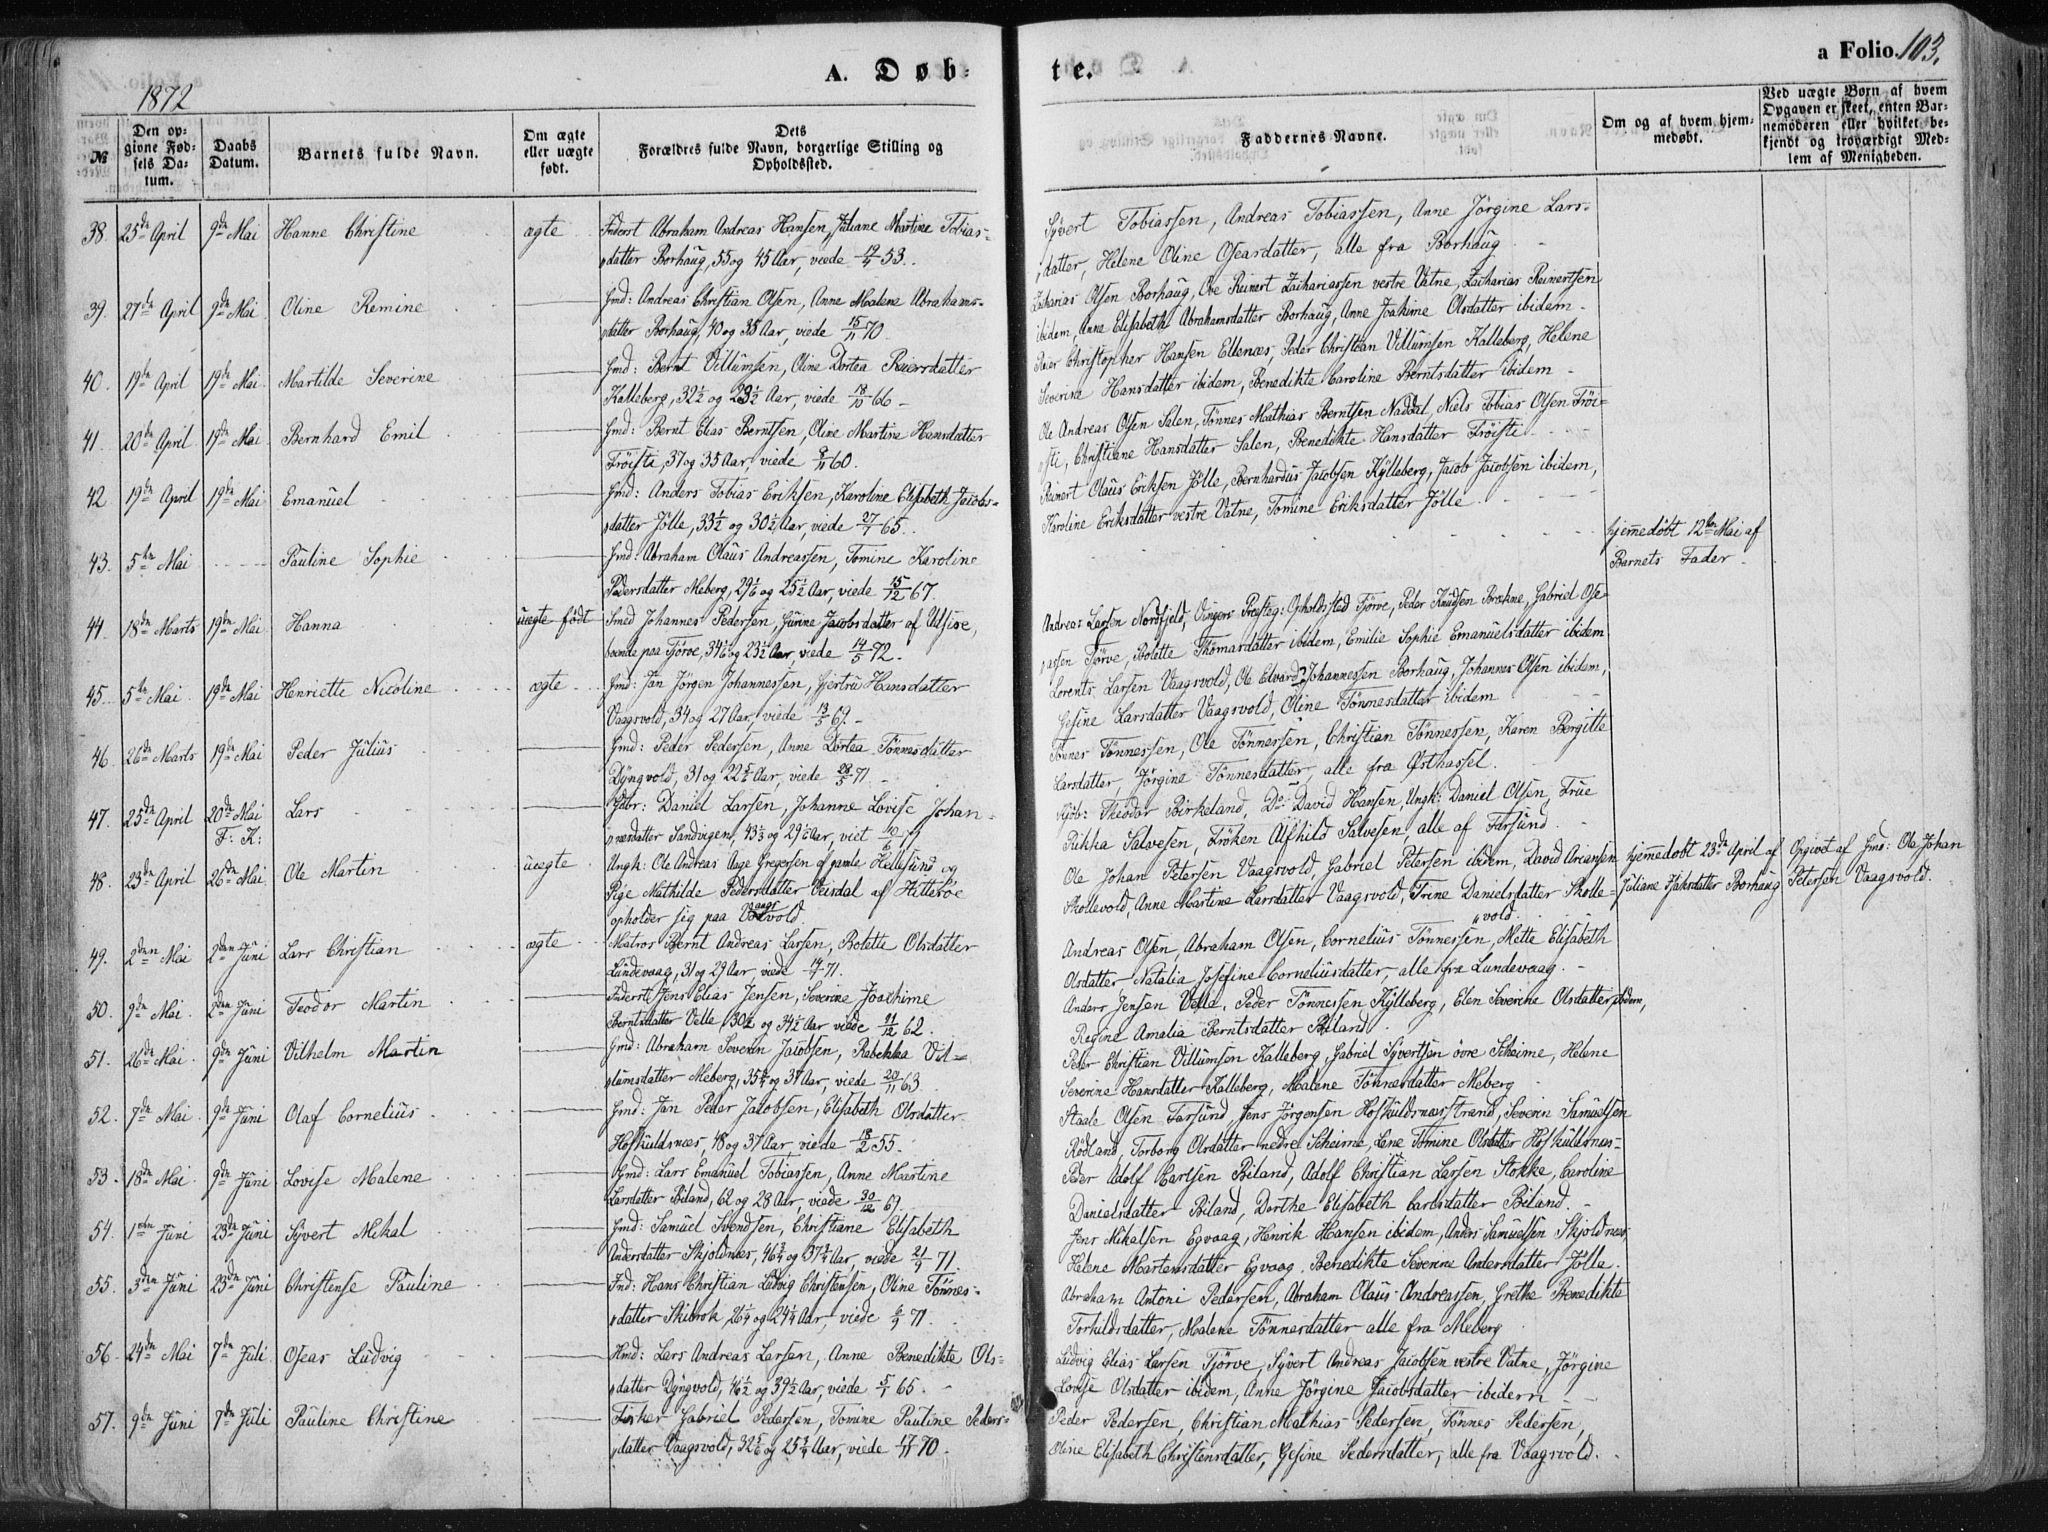 A. Døb-
te.
a Folio. 103.
1872
№
Den op-
givne Fød-
sels Da-
tum.
Daabs
Datum.
Barnets fulde Navn.
Om ægte
eller uægte
født.
Dets
Forældres fulde Navn, borgerlige Stilling og
Opholdssted.
Faddernes Navne.
Om og af hvem hjem-
medøbt.
Ved uægte Børn af hvem
Opgaven er skeet, enten Bar-
nemoderen eller hvilket be-
kjendt og troværdigt Med-
lem af Menigheden.
38. 25de April 9de Mai Hanne Christine ægte Inderst Abraham Andreas Hansen, Juliane Martine Tobias-
datter Borhaug, 55 og 45 Aar, viede 53.
Syvert Tobiassen, Andreas Tobiassen, Anne Jörgine Lars-
datter, Helene Oline Osearsdatter, alle fra Borhaug
39. 27de April 9de Mai Oline Remine Gmd: Andreas Christian Olsen, Anne Malene Abrahams-
datter Borhaug, 40 og 35 Aar, viede 15/11 70.
Zacharias Olsen Borhaug, Ove Reinert Zachariassen vestre Vatne, Zacharias Reinertsen
ibidem, Anne Elisabeth Abrahamsdatter Borhaug, Anne Joakime Olsdatter ibidem.
40. 19de April 19de Mai Martilde Severine Gmd: Bernt Villumsen, Oline Dortea Reiersdatter
Kalleberg, 32½ og 29½ Aar, viede 18/10 66
Reier Christopher Hansen Ellenæs, Peder Christian Villumsen Kalleberg, Helene
Severine Hansdatter ibidem, Benedikte Caroline Berntsdatter ibidem
41. 20de April 19de Mai Bernhard Emil Gmd: Bernt Elias Berntsen, Oline Martine Hansdatter
Fröisti, 37 og 35 Aar, viede 8/11 60.
Ole Andreas Olsen Salen, Tönnes Mathias Berntsen Naddal, Niels Tobias Olsen Fröi-
sti, Christiane Hansdatter Salen, Benedikte Hansdatter Fröisti
42 19de April 19de Mai Emanuel Gmd: Anders Tobias Eriksen, Karoline Elisabeth Jacobs-
datter Jölle, 33½ og 30½ Aar, viede 65.
Reinert Olaus Eriksen Jölle, Bernhardus Jacobsen Kylleberg, Jacob Jacobsen ibidem,
Karoline Eriksdatter vestre Vatne, Tomine Eriksdatter Jölle
43. 5te Mai Pauline Sophie Gmd: Abraham Olaus Andreassen, Tomine Karoline
Pedersdatter Meberg, 29 og 25½ Aar, viede 15/12 67.
hjemmedøbt 12te Mai af
Barnets Fader
44. 18de Marts 19de Mai Hanna uægte født Smed Johannes Pedersen, Gurine Jacobsdatter af Udsire,
boende paa Tjörve, 34 og 23½ Aar, viede 14/5 72.
Andreas Larsen Nordfjeld, Præsteg: Opholdssted Tjörve, Peder Knudsen Brækne, Gabriel Ose-
assen Tjörve, Bolette Thomasdatter ibidem, Emilie Sophie Emanuelsdatter ibidem
45. 5te Mai 19de Mai Henriette Nicoline ægte Gmd: Jan Jörgen Johannessen, Gjertru Hansdatter
Vaagsvold, 34 og 27 Aar, viede 13/5 69.
Lorents Larsen Vaagsvold, Ole Edvard Johannessen Borhaug, Johannes Olsen ibidem,
Gesine Larsdatter Vaagsvold, Oline Tönnesdatter ibidem
46. 26de Marts 19de Mai Peder Julius Gmd: Peder Pedersen, Anne Dortea Tönnesdatter
Dyngvold, 31 og 22 Aar, viede 28/5 71.
Tönnes Tönnessen, Ole Tönnessen, Christian Tönnessen, Karen Bergitte
Larsdatter, Jörgine Tönnesdatter, alle fra Østhassel.
47. 25de April 20de Mai Lars Daniel Larsen, Johanne Lovise Johan-
F: K:
nesdatter Sandvigen, 43 og 29 Aar, viet 71
Theodor Birkeland, Do David Hansen, Ungk: Daniel Olsen, Frue
Pukka Salvesen, Fröken Alfhild Salvesen, alle af Farsund
48. 23de April 26de Mai Ole Martin uægte Ungk: Ole Andreas Aage Gregersen af gamle Hellesund og
Pige Mathilde Pedersdatter Veisdal af Hitterøe
opholder sig paa Vaagsvold.
Ole Johan Petersen Vaagsvold, Gabriel Petersen ibidem, David Ariansen
Skollevold, Anne Martine Larsdatter Vaagsvold, Trine Danielsdatter Skolle-
vold.
hjemmedøbt 23de April af
Juliane Borhaug
Opgivet af Gmd: Ole Johan
Petersen Vaagsvold.
49. 2den Mai 2den Juni Lars Christian ægte Matros Bernt Andreas Larsen, Bolette Olsdatter
Lundevaag, 31 og 29 Aar, viede 71.
Andreas Olsen, Abraham Olsen, Cornelius Tönnessen, Mette Elisabeth
Olsdatter Natalia Josefine Corneliusdatter, alle fra Lundevaag.
50. 9de Mai 2den Juni Teodor Martin Inderst Jens Elias Jensen, Severine Joachime
Berntsdatter Velle 30½ og 34½ Aar, viede 62.
Anders Jensen Velle, Peder Tönnessen Kylleberg, Elen Severine Olsdatter ibidem,
Regine Amalia Berntsdatter Biland.
51. 26de Mai 9de Juni Vilhelm Martin Gmd: Abraham Severin Jacobsen, Rebekka Vil-
lumsdatter Meberg, 35 og 37 Aar, viede 20/11 63
Peder Christian Villumsen Kalleberg, Gabriel Syvertsen övre Skeime, Helene
Severine Hansdatter Kalleberg, Malene Tönnesdatter Meberg
52. 7de Mai 9de Juni Olaf Cornelius Gmd: Jan Peder Jacobsen, Elisabeth Olsdatter
Hoskuldsnæs, 48 og 37 Aar, viede 18/2 55.
Staale Olsen Farsund, Jens Jörgensen Hoskuldsnæsstrand, Severin Samuelsen
Rødland, Torborg Olsdatter nedre Skeime, Lene Tomine Olsdatter Hoskuldsnæs
53. 18de Mai 9de Juni Lovise Malene Gmd: Lars Emanuel Tobiassen, Anne Martine
Larsdatter Biland, 62 og 28 Aar, viede 30/12 69
Peder Adolf Carlsen Biland, Adolf Christian Larsen Stokke, Caroline
Danielsdatter Biland, Dorthe Elisabeth Carlsdatter Biland.
54. 1ste Juni 23de Juni Syvert Mekal Gmd: Samuel Svendsen, Christiane Elisabeth
Andersdatter Skjoldnæs, 46 og 37 Aar, viede 71.
Jens Mikalsen Egvaag, Henrik Hansen ibidem, Anders Samuelsen Skjoldnæs
Helene Martensdatter Egvaag, Benedikte Severine Andersdatter Jölle.
55. 3die Juni 23de Juni Christense Pauline Ind: Hans Christian Ludvig Christensen, Oline Tönnes-
datter Skibrok, 26 og 24 Aar, viede 71.
Abraham Antoni Pedersen, Abraham Olaus Andreassen, Grethe Benedikte
Torkildsdatter, Malene Tönnesdatter alle fra Meberg
56. 24de Mai 7de Juli Oseas Ludvig Hmd: Lars Andreas Larsen, Anne Benedikte Ols-
datter Dyngvold, 46½ og 39½ Aar, viede 5/1 65.
Ludvig Elias Larsen Tjörve, Syvert Andreas Jacobsen vestre Vatne, Jörgine
Lovise Olsdatter ibidem, Anne Jörgine Jacobsdatter ibidem
57. 9de Juni 7de Juli Pauline Christine Fisker Gabriel Pedersen, Tomine Pauline Peders-
datter Vaagsvold, 32 og 25 Aar, viede 70.
Peder Pedersen, Christian Mathias Pedersen, Tönnes Pedersen,
Oline Elisabeth Christensdatter, Gesine Pedersdatter, alle fra Vaagsvold.